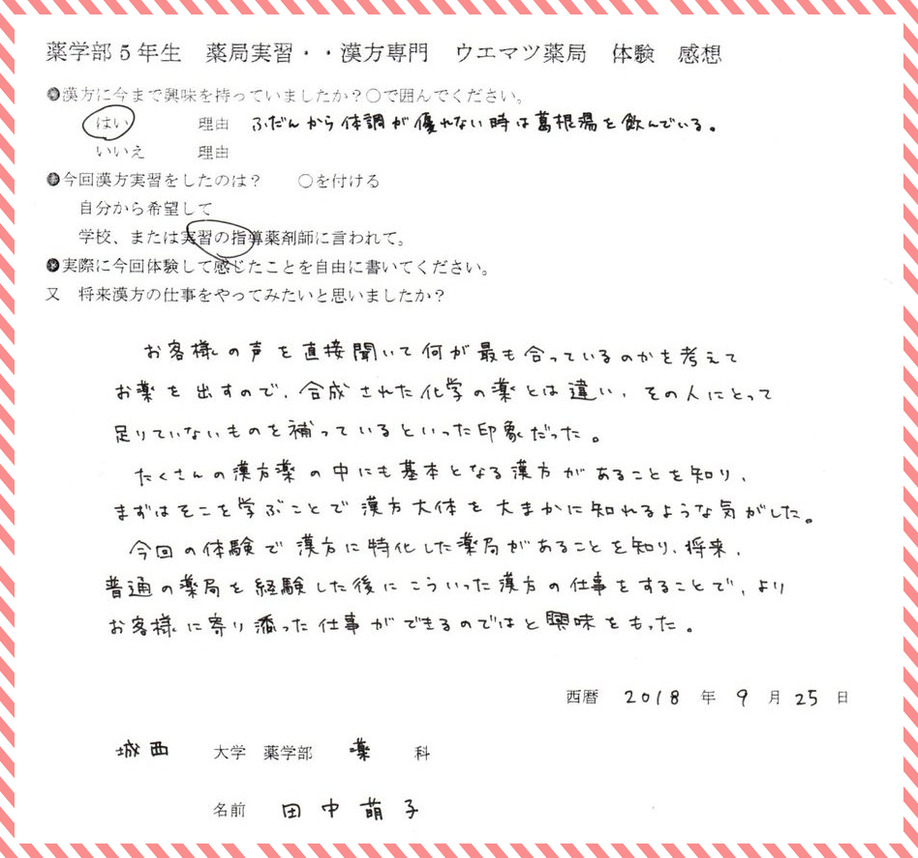 薬学部5年生　薬局実習・・漢方専門　ウエマツ薬局　体験　感想
●漢方に今まで興味を持っていましたか？○で囲んでください。
はい　理由　ふだんから体調が優れない時は葛根湯を飲んでいる。
いいえ　理由
●今回漢方実習をしたのは？　○を付ける
自分から希望して
学校、または実習の指導薬剤師に言われて。
●実際に今回体験して感じたことを自由に書いてください。
又　将来漢方の仕事をやってみたいと思いましたか？
お客様の声を直接聞いて何が最も合っているのかを考えて
お薬を出すので、合成された化学の薬とは違い、その人にとって
足りていないものを補っているといった印象だった。
たくさんの漢方薬の中にも基本となる漢方があることを知り、
まずはそこを学ぶことで漢方大体を大まかに知れるような気がした。
今回の体験で漢方に特化した薬局があることを知り、将来、
普通の薬局を経験した後にこういった漢方の仕事をすることで、より
お客様に寄り添った仕事ができるのではと興味をもった。
西暦　2018　年　9　月　25　日
城西　大学　薬学部　薬　科
名前　田中萌子